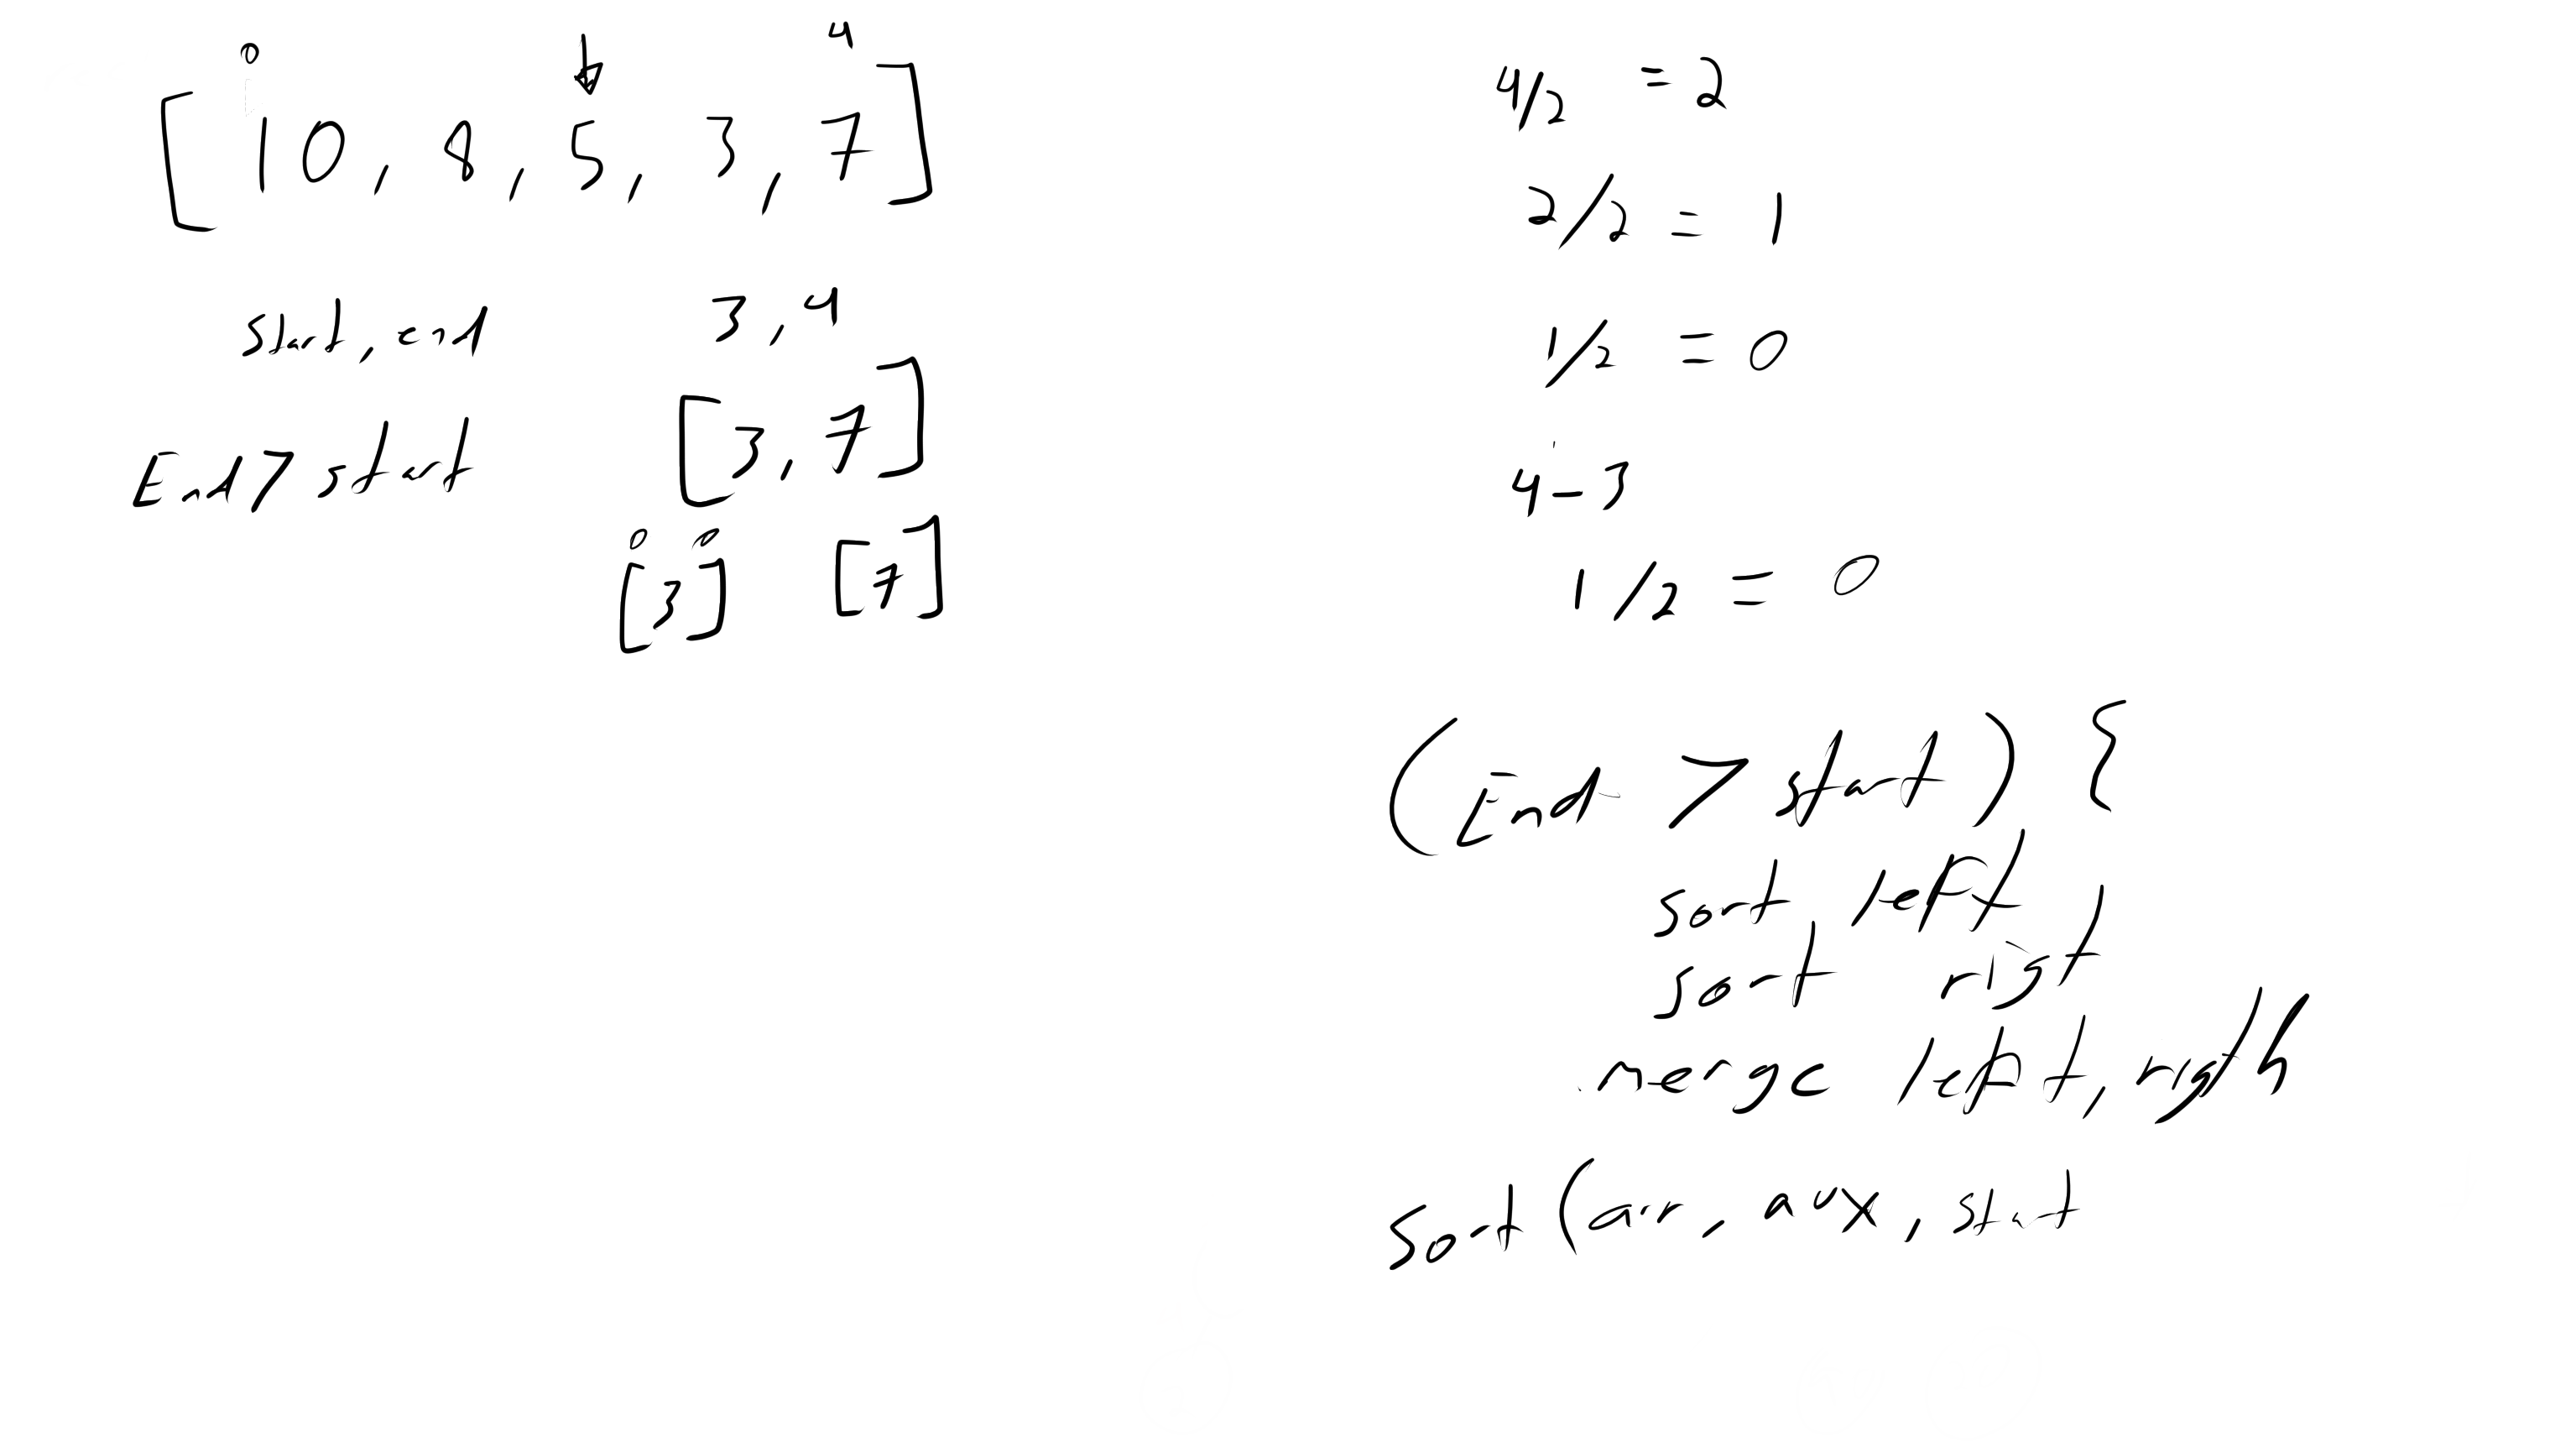 0 4
[10, 8, 5, 3, 7]
start, end
End > start
3, 4
[3, 7]
0 0
[3] [7]
4/2 = 2
2/2 = 1
1/2 = 0
4-3
1/2 = 0
(End > start) {
sort left
sort rigt
merge left, rigth
Sort (arr, aux, start